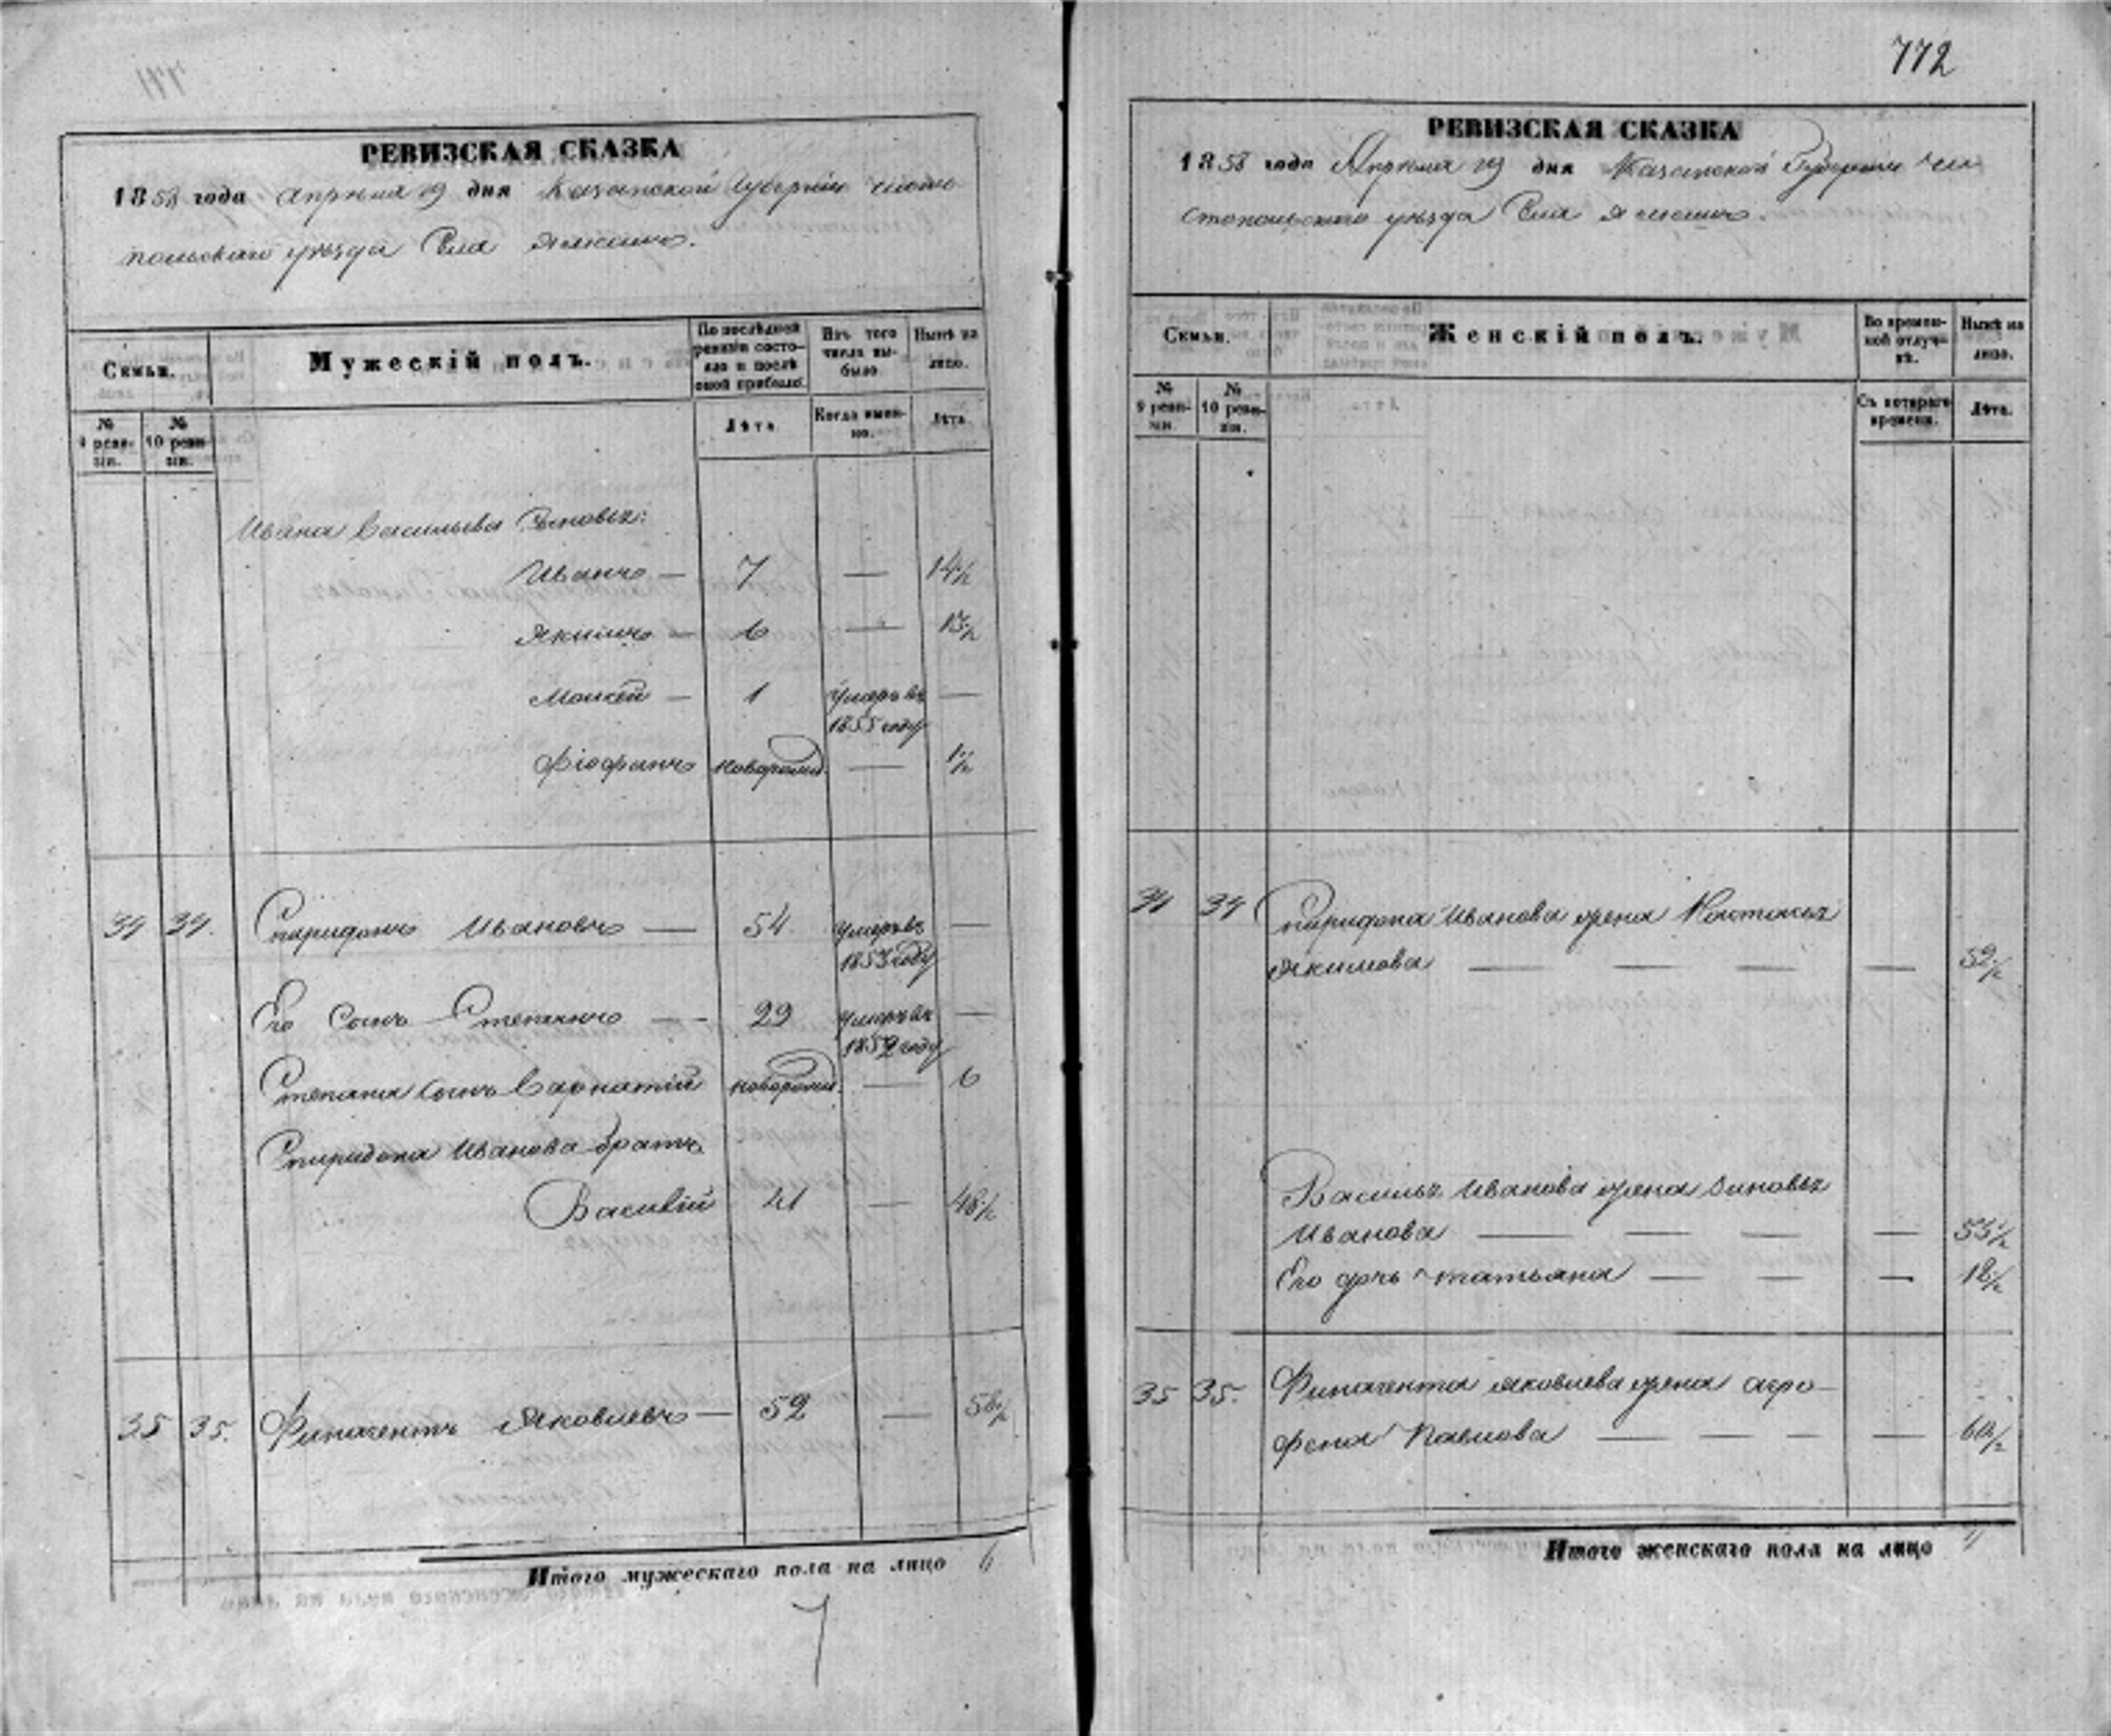 772
РЕВИЗСКАЯ СКАЗКА
1858 года Апрѣля 19 дня Казанской Губерніи чисто
польскаго уѣзда Села
Семьи.
Мужескій полъ.
По послѣдней ревизіи состояло и послѣ оной прибыло.
Изъ того числа выбыло.
Нынѣ на лицо.
№ 9 ревизіи.
№ 10 ревизіи.
Лѣта
Когда именно.
Лѣта.
Ивана Васильева Сыновья:
Иванъ — 7 — 14½
Якимъ — 6 — 13½
Моисей — 1 умеръ въ —
1855 году
Фіофанъ новорожд. — 1½
34 34. Спиридонъ Ивановъ — 54 умеръ въ —
1853 году
Его Сынъ Степанъ — 29 умеръ въ —
1852 году
Степана Сынъ новорожд. — 6
Спиридона Иванова братъ
Василій 41 — 48½
35 35. Яковлевъ — 52 — 58½
Итого мужескаго пола на лицо 6
7
РЕВИЗСКАЯ СКАЗКА
1858 года Апрѣля 19 дня Казанской Губерніи чи
стопольскаго уѣзда Села
Семьи.
Женскій полъ.
Во временной отлучкѣ.
Нынѣ на лицо.
№ 9 ревизіи.
№ 10 ревизіи.
Съ котораго времени.
Лѣта.
34 34 Спиридона Иванова жена Настасья
Якимова — — — — 52½
Василья Иванова жена Зиновья
Иванова — — — — 53½
Его дочь Татьяна — — — 18½
35 35. Яковлева жена агро
фена Павлова — — — — 60½
Итого женскаго пола на лицо 4